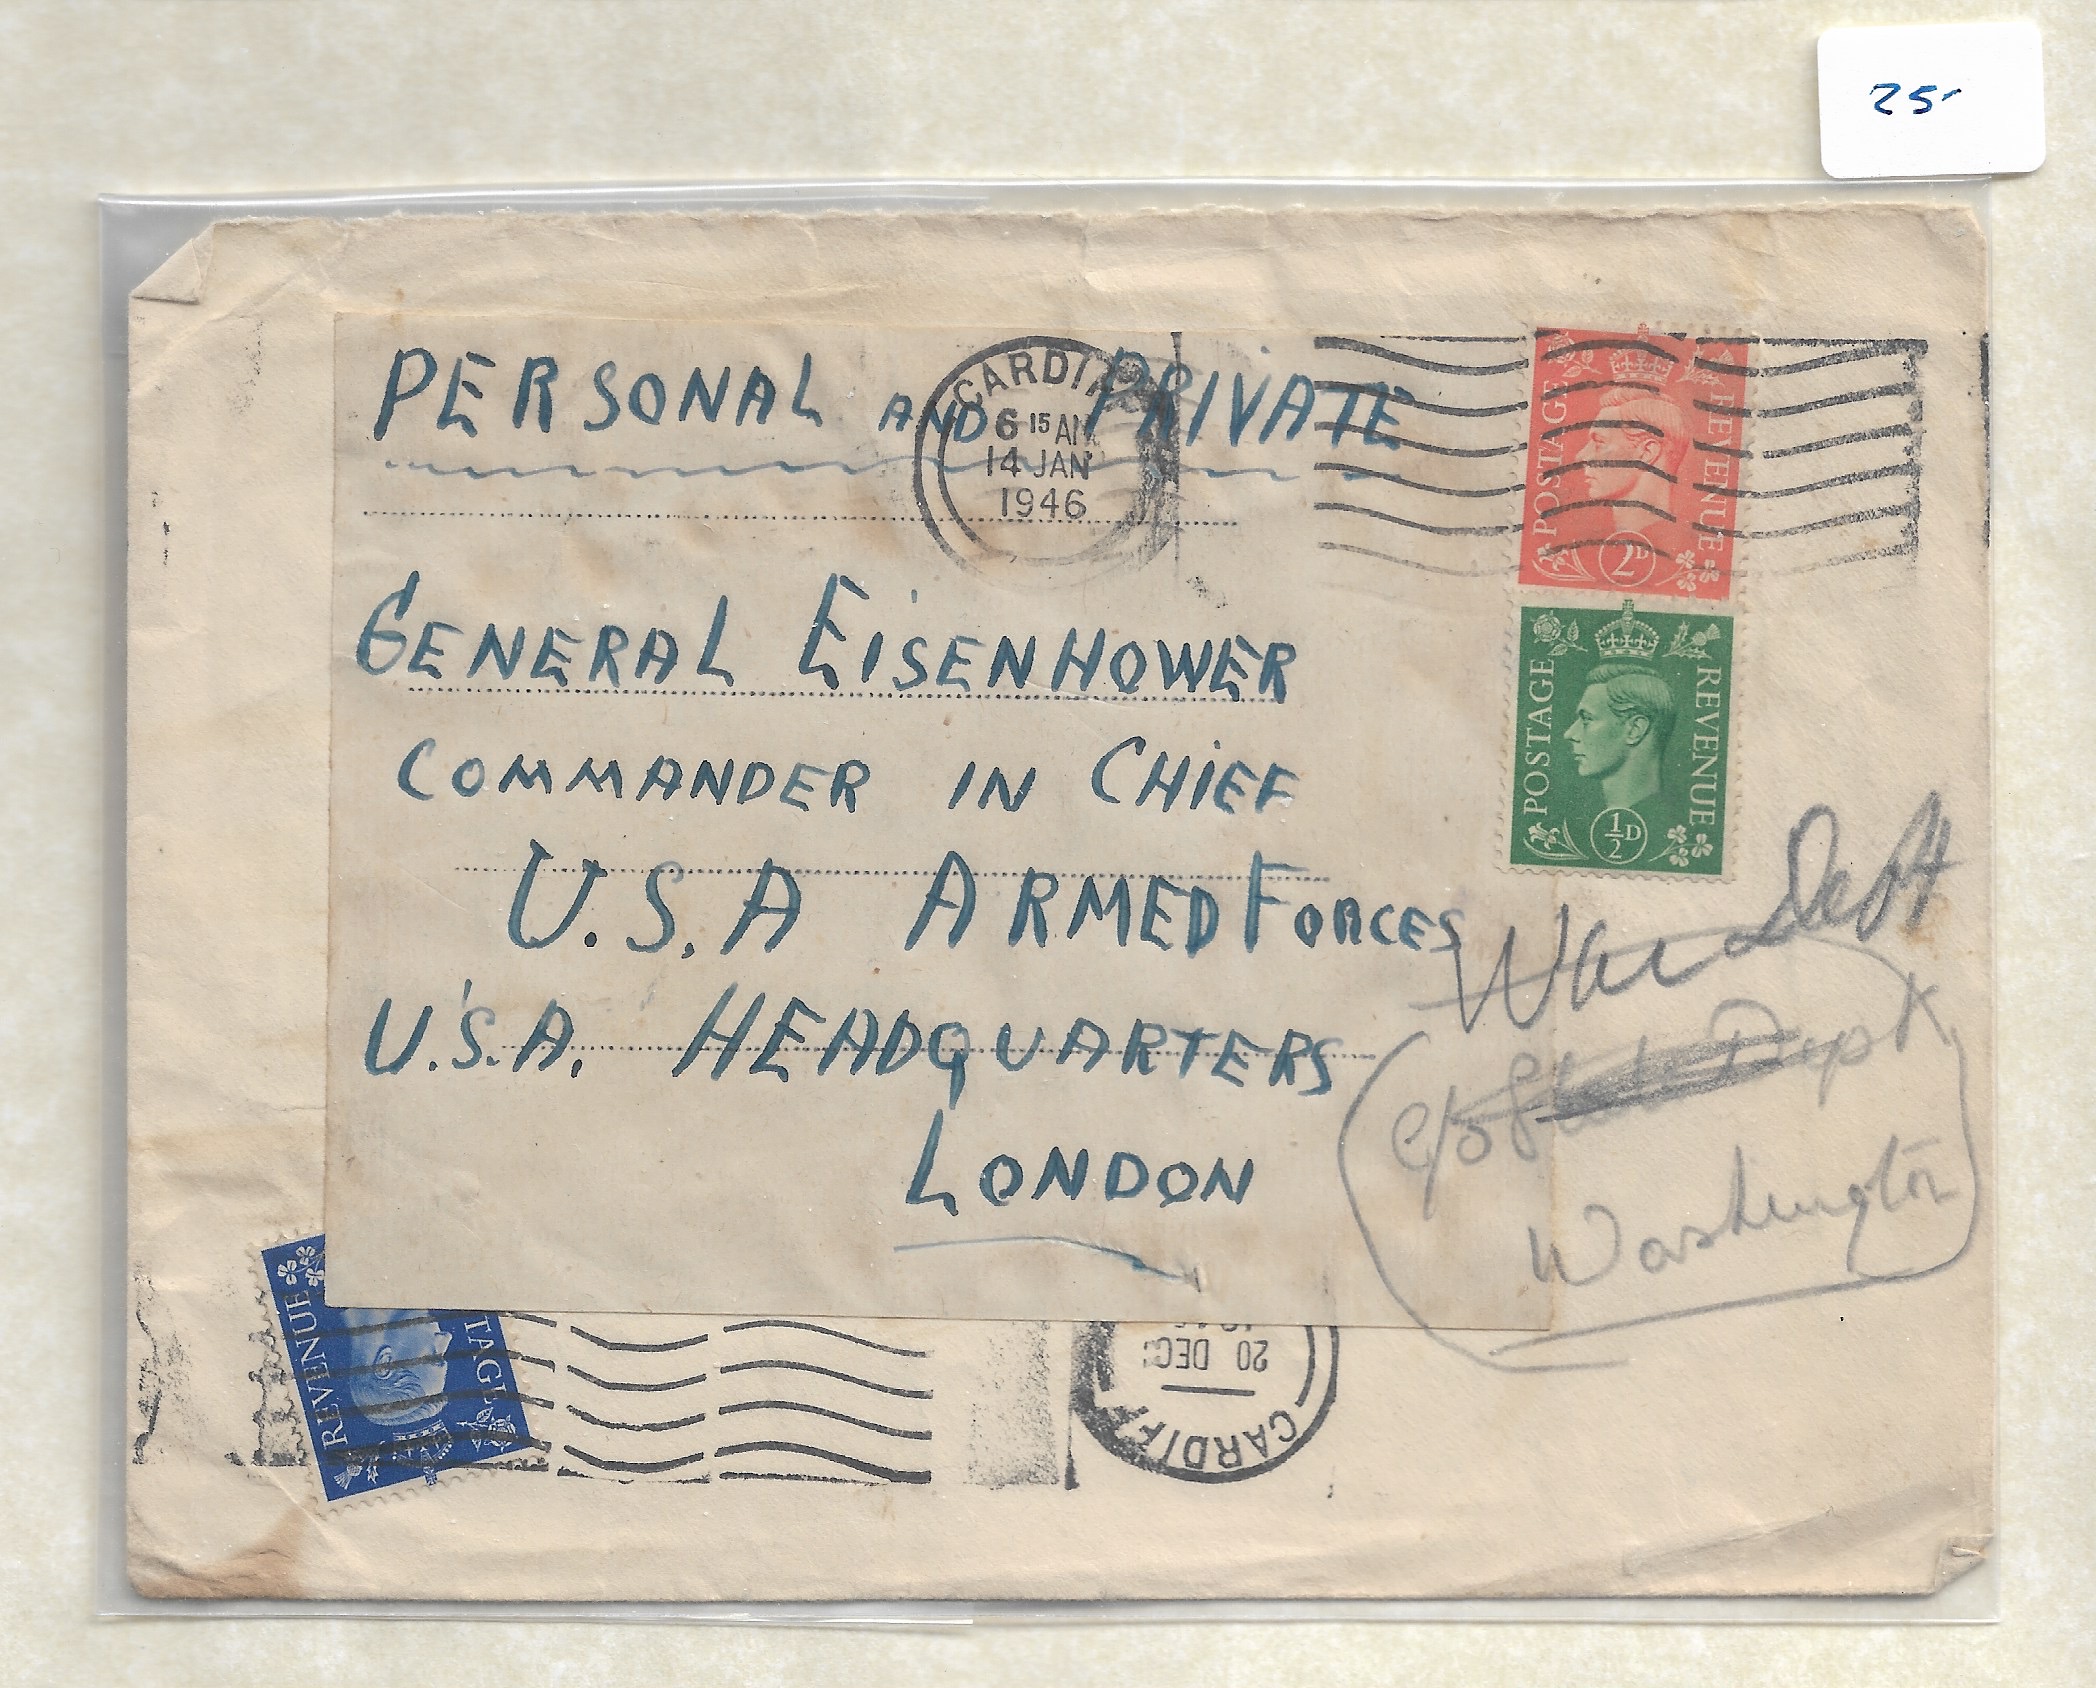 25
PERSONAL AND PRIVATE
CARDIFF
6 15 AM
14 JAN
1946
GENERAL EISENHOWER
COMMANDER IN CHIEF
U.S.A ARMED FORCES
U.S.A. HEADQUARTERS
LONDON
POSTAGE REVENUE
2D
POSTAGE REVENUE
½D
War Dept
c/o Dept
Washington
REVENUE TAGE
20 DEC
CARDIFF